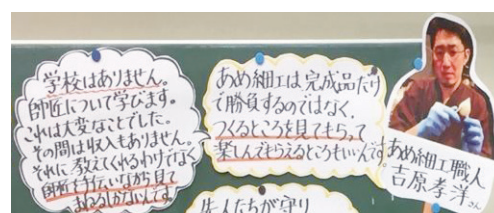 学校はありません。
師匠について学びます。
これは大変なことでした。
その間は収入もありません。
それに、教えてくれるわけでなく
師匠を手伝いながら見て
まねるしかないんです。
あめ細工は完成品だけ
で勝負するのではなく、
つくるところを見てもらって
楽しんでもらえるところもいいんです
先人たちが守り
あめ細工職人
吉原孝洋さん